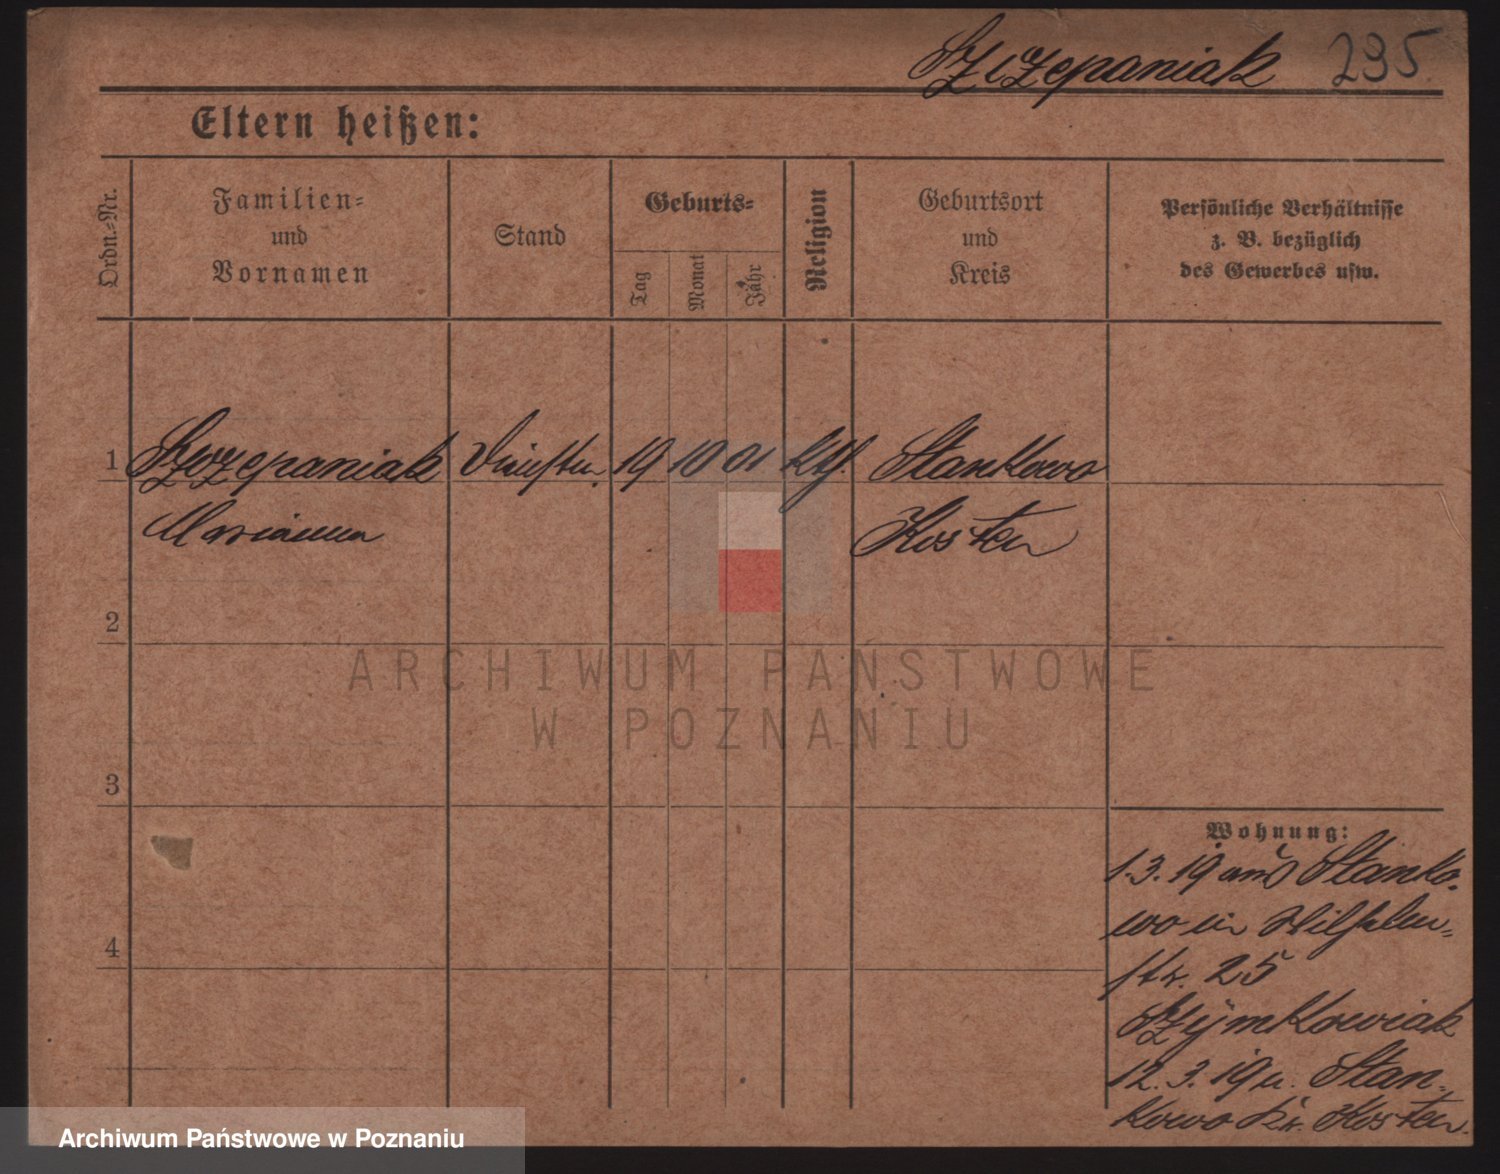 Szczepaniak 235
Eltern heißen:
Ordn.-Nr.
Familien-
und
Vornamen
Stand
Geburts-
Tag
Monat
Jahr
Religion
Geburtsort
und
Kreis
Persönliche Verhältnisse
z. B. bezüglich
des Gewerbes usw.
1 Szczepaniak 19 10 01 kth. Stankowo
Marianna Kosten
2
3
4
Wohnung:
1.3.19 aus Stanko-
wo in Wilhelm-
str. 25
Szymkowiak
12.3.19 n. Stan-
kowo Kr. Kosten.
ARCHIWUM PAŃSTWOWE
W POZNANIU
Archiwum Państwowe w Poznaniu